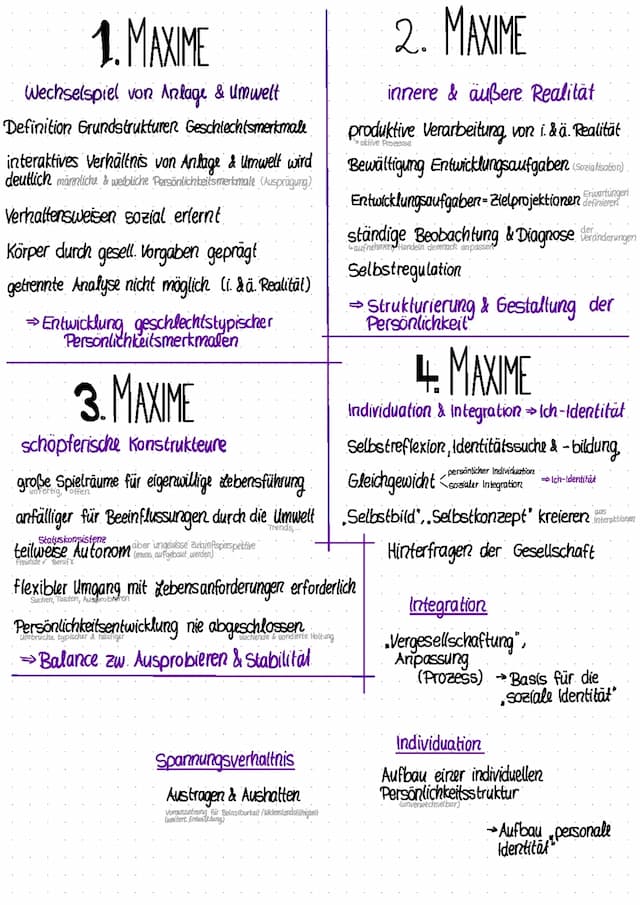 1. MAXIME
Wechselspiel von Anlage & Umwelt
Definition Grundstrukturen Geschlechtsmerkmale
interaktives Verhältnis von Anlage & Umwelt wird
deutlich männliche & weibliche Persönlichkeitsmerkmale (Ausprägung)
Verhaltensweisen sozial erlernt
Körper durch gesell. Vorgaben geprägt
getrennte Analyse nicht möglich (i. & ä. Realität)
⇒ Entwicklung geschlechtstypischer
Persönlichkeitsmerkmalen
2. MAXIME
innere & äußere Realität
produktive Verarbeitung von i. & ä. Realität
↳ aktive Prozesse
Bewältigung Entwicklungsaufgaben (Sozialisation)
Entwicklungsaufgaben = Zielprojektionen Erwartungen
definieren
ständige Beobachtung & Diagnose der
Veränderungen
↳ aufnehmen, Handeln demnach anpassen
Selbstregulation
⇒ Strukturierung & Gestaltung der
Persönlichkeit
3. MAXIME
schöpferische Konstrukteure
große Spielräume für eigenwillige Lebensführung
unfertig, offen
anfälliger für Beeinflussungen durch die Umwelt
Trends,...
Statuskonsistenz
teilweise Autonom aber ungewisse Zukunftsperspektive
(muss aufgebaut werden)
Freunde ✓ Beruf x
flexibler Umgang mit Lebensanforderungen erforderlich
Suchen, Tasten, Ausprobieren
Persönlichkeitsentwicklung nie abgeschlossen
Umbrüche typischer & häufiger suchende & sondierte Haltung
⇒ Balance zw. Ausprobieren & Stabilität
4. MAXIME
Individuation & Integration ⇒ Ich-Identität
Selbstreflexion, Identitätssuche & -bildung,
Gleichgewicht < persönlicher Individuation
sozialer Integration ⇒ Ich-Identität
„Selbstbild", „Selbstkonzept" kreieren aus
Interaktionen
Hinterfragen der Gesellschaft
Integration
„Vergesellschaftung",
Anpassung
(Prozess) → Basis für die
„soziale Identität"
Individuation
Aufbau einer individuellen
Persönlichkeitsstruktur
(unverwechselbar)
→ Aufbau „personale
Identität"
Spannungsverhältnis
Austragen & Aushalten
Voraussetzung für Belastbarkeit / Widerstandsfähigkeit
(weitere Entwicklung)